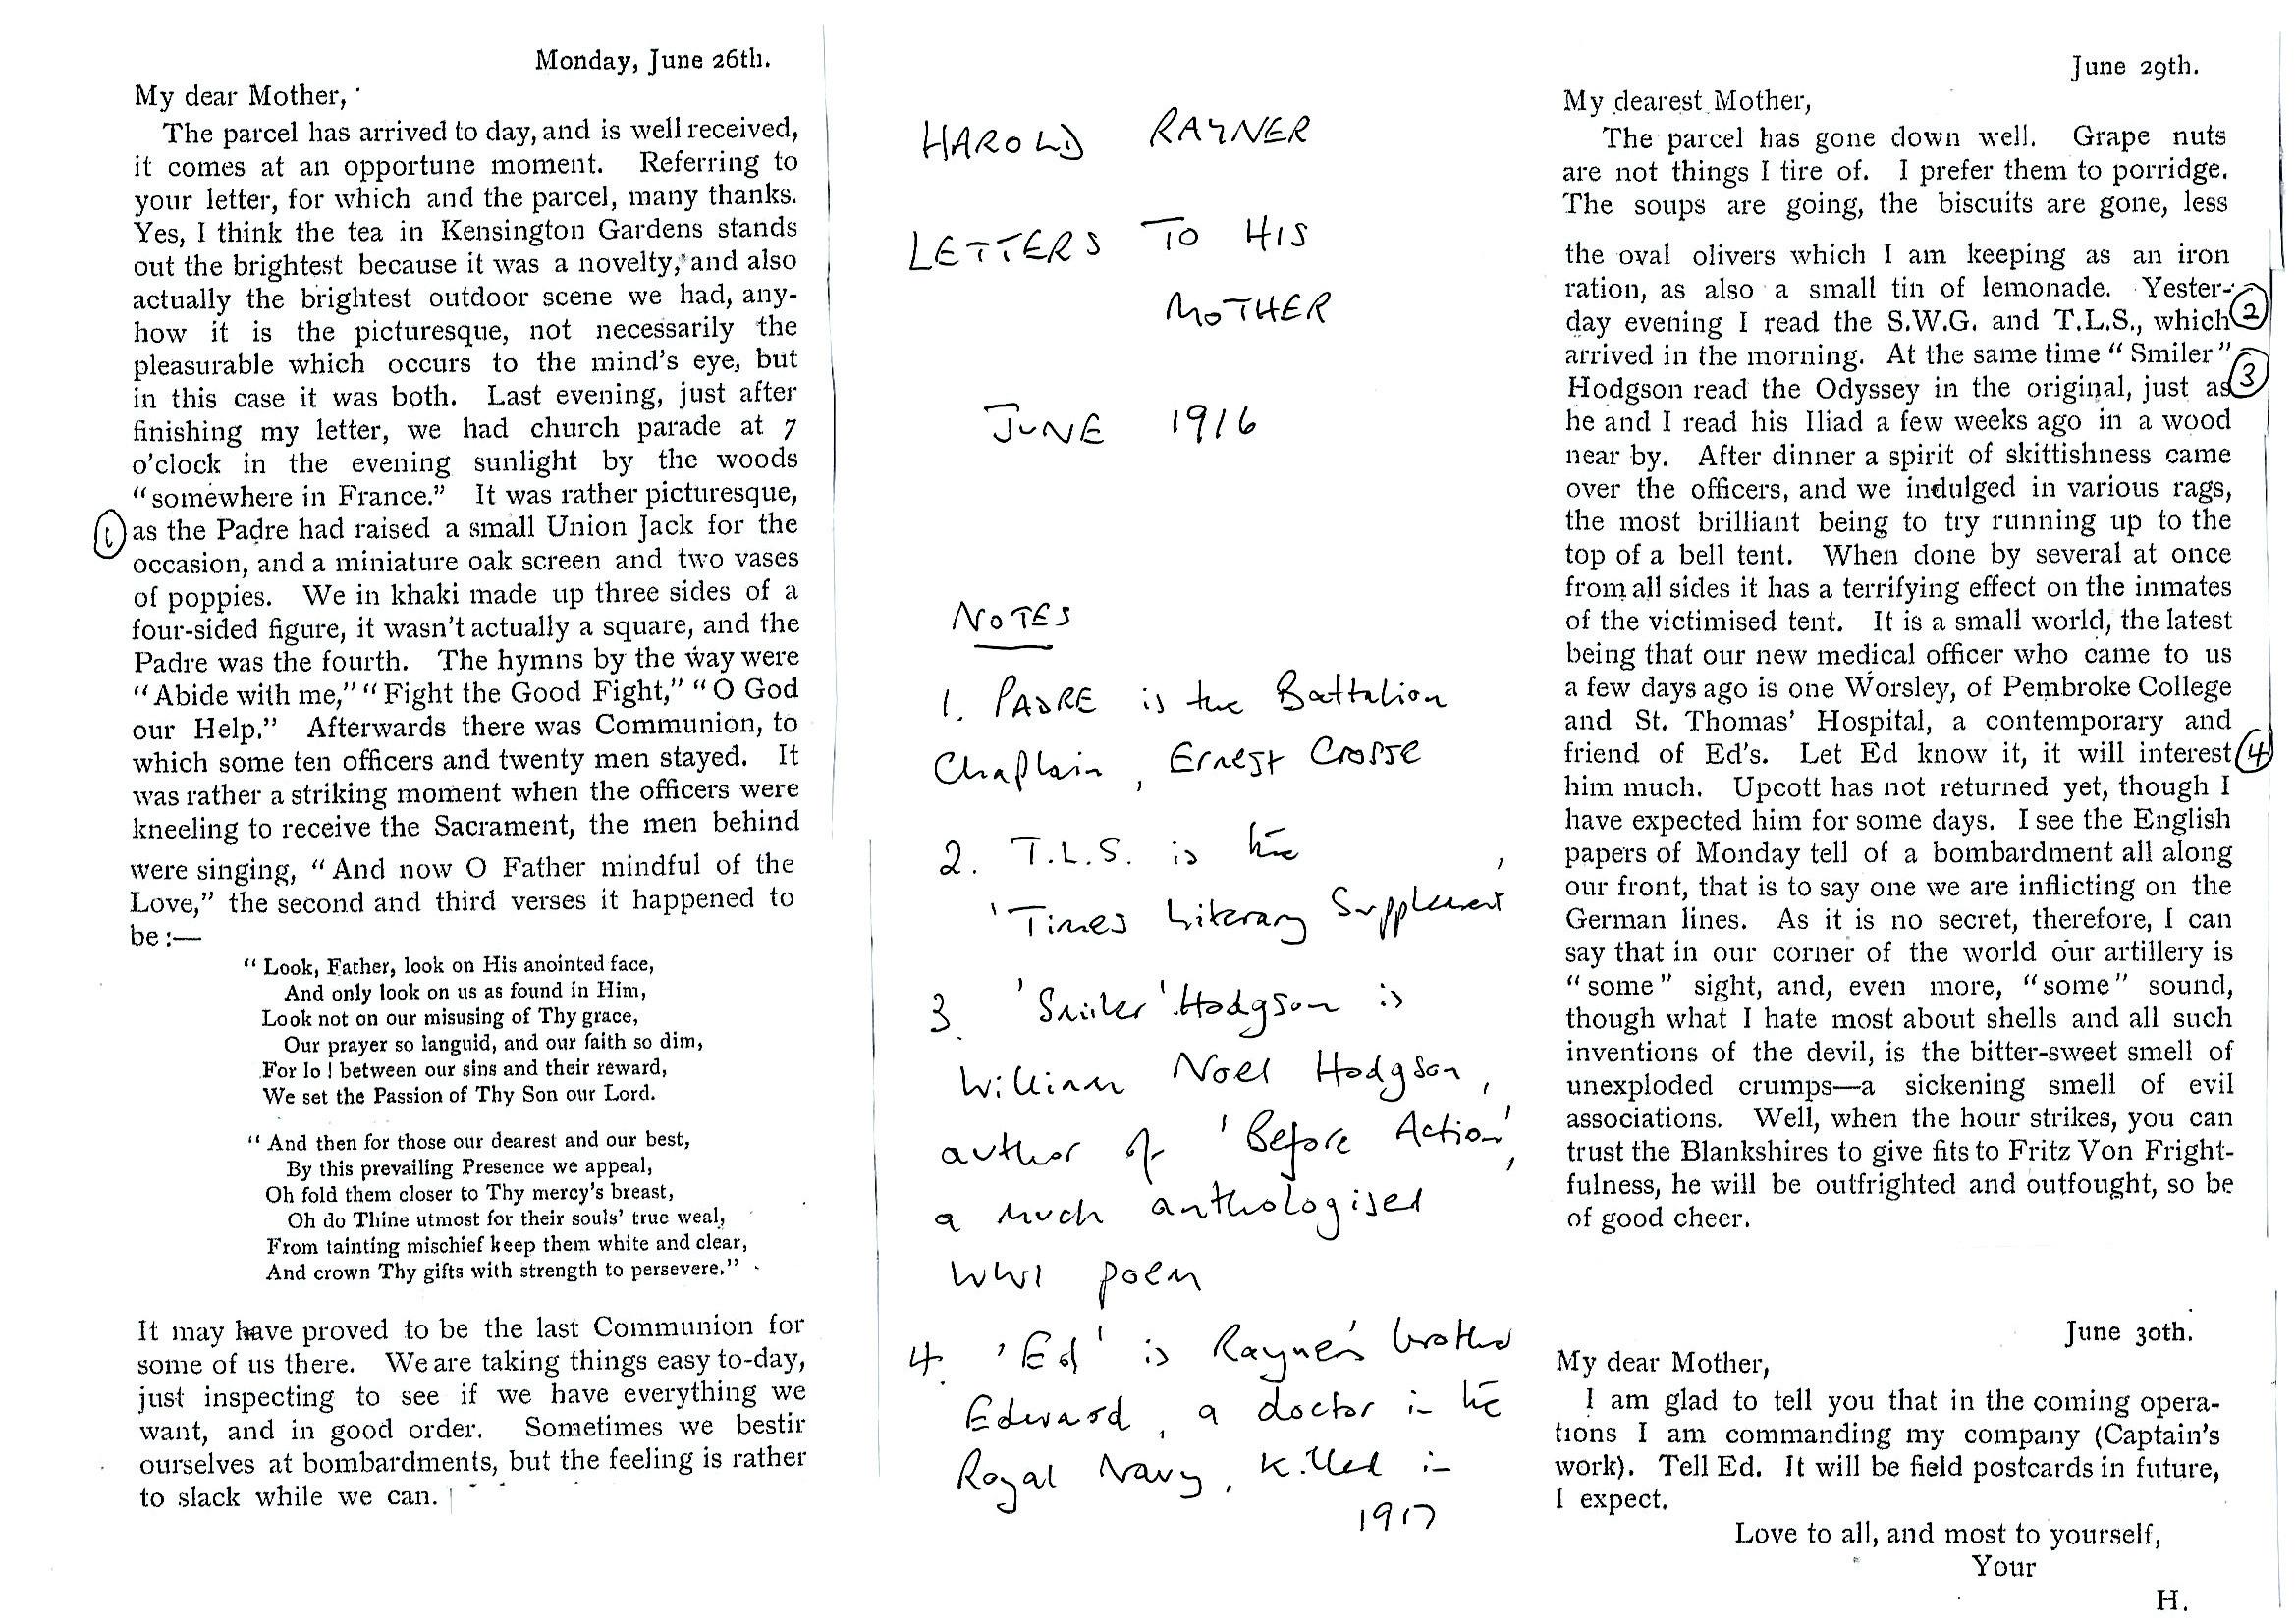 Monday, June 26th.
My dear Mother,
The parcel has arrived to day, and is well received,
it comes at an opportune moment. Referring to
your letter, for which and the parcel, many thanks.
Yes, I think the tea in Kensington Gardens stands
out the brightest because it was a novelty, and also
actually the brightest outdoor scene we had, any-
how it is the picturesque, not necessarily the
pleasurable which occurs to the mind's eye, but
in this case it was both. Last evening, just after
finishing my letter, we had church parade at 7
o'clock in the evening sunlight by the woods
"somewhere in France." It was rather picturesque,
(1) as the Padre had raised a small Union Jack for the
occasion, and a miniature oak screen and two vases
of poppies. We in khaki made up three sides of a
four-sided figure, it wasn't actually a square, and the
Padre was the fourth. The hymns by the way were
"Abide with me," "Fight the Good Fight," "O God
our Help." Afterwards there was Communion, to
which some ten officers and twenty men stayed. It
was rather a striking moment when the officers were
kneeling to receive the Sacrament, the men behind
were singing, "And now O Father mindful of the
Love," the second and third verses it happened to
be:—
"Look, Father, look on His anointed face,
And only look on us as found in Him,
Look not on our misusing of Thy grace,
Our prayer so languid, and our faith so dim,
For lo! between our sins and their reward,
We set the Passion of Thy Son our Lord.
"And then for those our dearest and our best,
By this prevailing Presence we appeal,
Oh fold them closer to Thy mercy's breast,
Oh do Thine utmost for their souls' true weal,
From tainting mischief keep them white and clear,
And crown Thy gifts with strength to persevere."
It may have proved to be the last Communion for
some of us there. We are taking things easy to-day,
just inspecting to see if we have everything we
want, and in good order. Sometimes we bestir
ourselves at bombardments, but the feeling is rather
to slack while we can.
HAROLD RAYNER
LETTERS TO HIS
MOTHER
JUNE 1916
NOTES
1. PADRE is the Battalion
Chaplain, Ernest Crosse
2. T.L.S. is the
'Times Literary Supplement'
3. 'Smiler' Hodgson is
William Noel Hodgson,
author of 'Before Action',
a much anthologised
WWI poem
4. 'Ed' is Rayner's brother
Edward, a doctor in the
Royal Navy, killed in
1917
June 29th.
My dearest Mother,
The parcel has gone down well. Grape nuts
are not things I tire of. I prefer them to porridge.
The soups are going, the biscuits are gone, less
the oval olivers which I am keeping as an iron
ration, as also a small tin of lemonade. Yester-
day evening I read the S.W.G. and T.L.S., which (2)
arrived in the morning. At the same time "Smiler"
Hodgson read the Odyssey in the original, just as (3)
he and I read his Iliad a few weeks ago in a wood
near by. After dinner a spirit of skittishness came
over the officers, and we indulged in various rags,
the most brilliant being to try running up to the
top of a bell tent. When done by several at once
from all sides it has a terrifying effect on the inmates
of the victimised tent. It is a small world, the latest
being that our new medical officer who came to us
a few days ago is one Worsley, of Pembroke College
and St. Thomas' Hospital, a contemporary and
friend of Ed's. Let Ed know it, it will interest (4)
him much. Upcott has not returned yet, though I
have expected him for some days. I see the English
papers of Monday tell of a bombardment all along
our front, that is to say one we are inflicting on the
German lines. As it is no secret, therefore, I can
say that in our corner of the world our artillery is
"some" sight, and, even more, "some" sound,
though what I hate most about shells and all such
inventions of the devil, is the bitter-sweet smell of
unexploded crumps—a sickening smell of evil
associations. Well, when the hour strikes, you can
trust the Blankshires to give fits to Fritz Von Fright-
fulness, he will be outfrighted and outfought, so be
of good cheer.
June 30th.
My dear Mother,
I am glad to tell you that in the coming opera-
tions I am commanding my company (Captain's
work). Tell Ed. It will be field postcards in future,
I expect.
Love to all, and most to yourself,
Your
H.